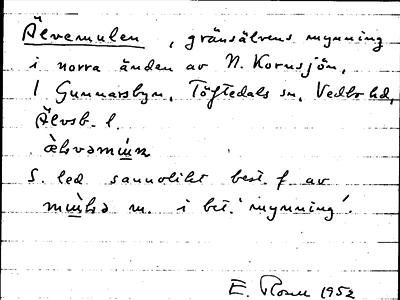 Älvemulen, gränsälvens mynning
i norra änden av N. Kornsjön,
l Gunnarsbyn, Töftedals sn, Vedbo hd,
Älvsb. l.
S. led sannolikt best. f. av
m. i bet. 'mynning'.
E. 1952